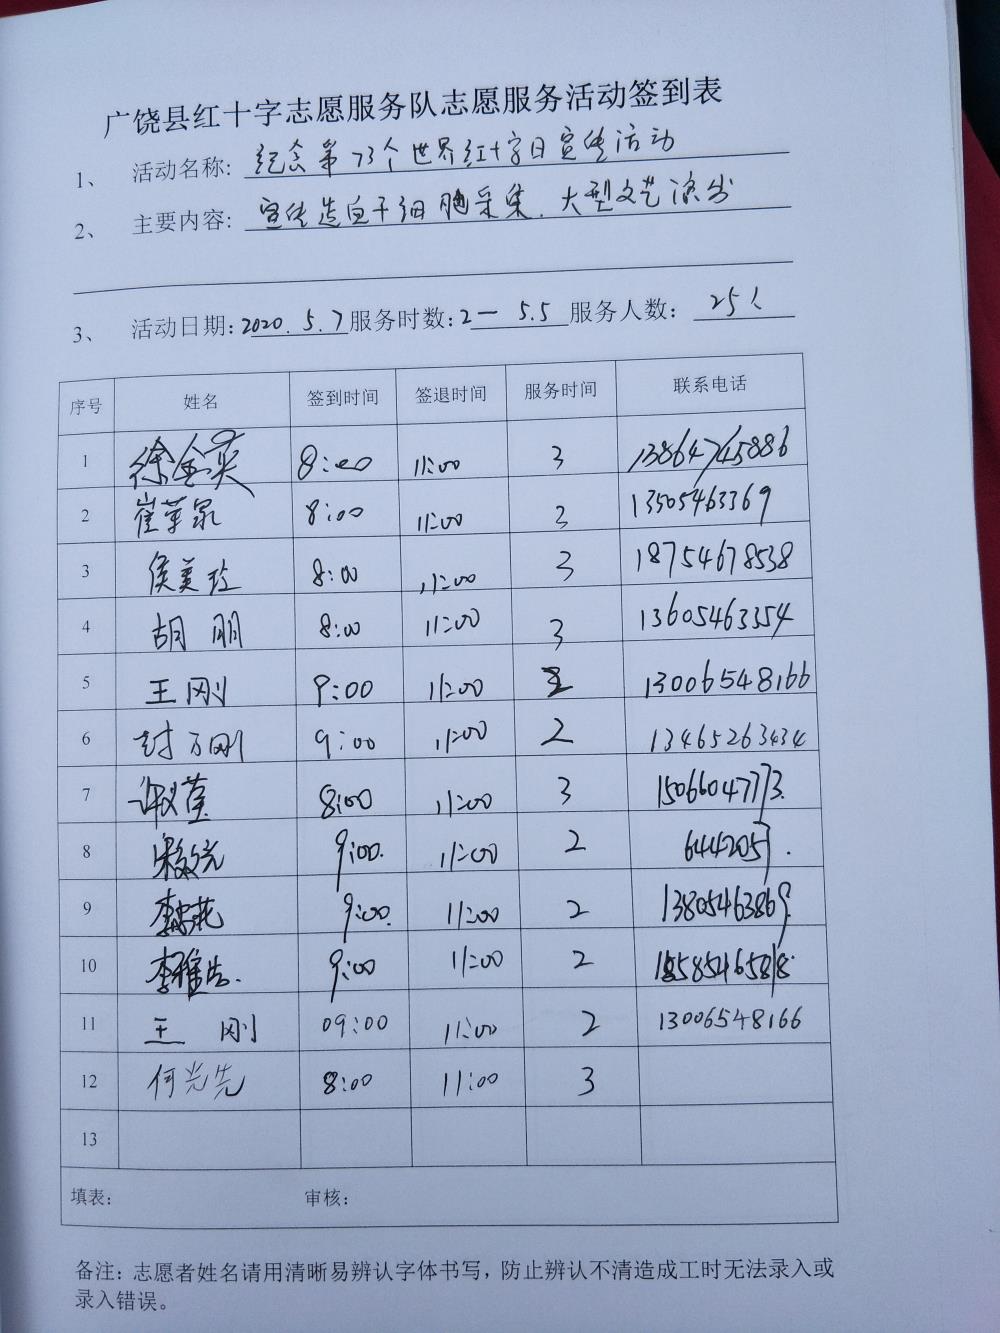 广饶县红十字志愿服务队志愿服务活动签到表
1、 活动名称: 纪念第73个世界红十字日宣传活动
2、 主要内容: 宣传造血干细胞采集、大型文艺演出
3、 活动日期: 2020.5.7 服务时数: 2— 5.5 服务人数: 25人
序号 姓名 签到时间 签退时间 服务时间 联系电话
1 徐金英 8:00 11:00 3 13864745886
2 崔苹泉 8:00 11:00 3 13505463369
3 侯美玲 8:00 11:00 3 18754678538
4 胡朋 8:00 11:00 3 13605463354
5 王刚 9:00 11:00 2 13006548166
6 封万刚 9:00 11:00 2 13465263434
7 8:00 11:00 3 15066047773.
8 9:00. 11:00 2 6442053.
9 9:00. 11:00 2 13805463869.
10 李雅洁. 9:00 11:00 2
11 王刚 09:00 11:00 2 13006548166
12 何光先 8:00 11:00 3
13
填表: 审核:
备注: 志愿者姓名请用清晰易辨认字体书写,防止辨认不清造成工时无法录入或
录入错误。